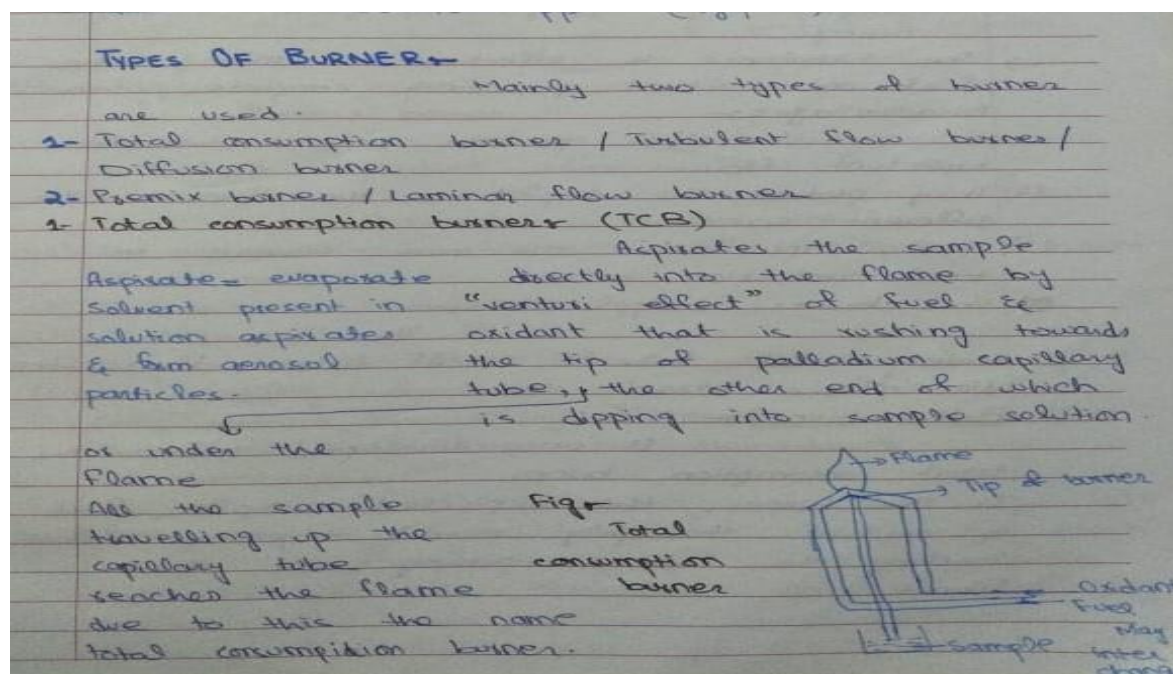 TYPES OF BURNER-
Mainly two types of burner
are used.
1- Total consumption burner / Turbulent flow burner /
Diffusion burner
2- Premix burner / Laminar flow burner
1- Total consumption burner- (TCB)
Aspirates the sample
directly into the flame by
"venturi effect" of fuel &
oxidant that is rushing towards
the tip of palladium capillary
tube, & the other end of which
is dipping into sample solution.
Aspirate - evaporate
solvent present in
solution aspirates
& form aerosol
particles.
or under the
flame
All the sample
travelling up the
capillary tube
reaches the flame
due to this the name
total consumpition burner.
Fig-
Total
consumption
burner
Flame
Tip of burner
Oxidan
Fuel
May
inter
chang
Sample